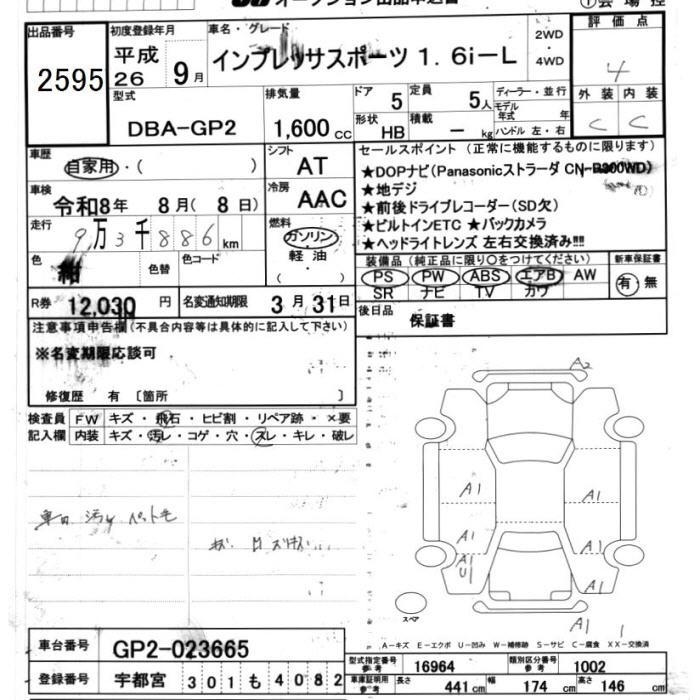 オークション出品申込書
出品番号
2595
初度登録年月
平成
26 9月
車名・グレード
インプレッサスポーツ 1.6i-L
2WD
・
4WD
評価点
4
型式
DBA-GP2
排気量
1,600 cc
ドア 5
定員 5人
形状 HB
積載 - kg
ディーラー・並行
モデル年式 年
ハンドル 左・右
外装 内装
C C
車歴
自家用・( )
シフト
AT
車検
令和8年 8月(8日)
冷房
AAC
走行
9万3千886km
燃料
ガソリン
軽油
( )
色
紺
色替
色コード
R券 12,030円
名変通知期限 3月31日
セールスポイント (正常に機能するものに限ります)
★DOPナビ(Panasonicストラーダ CN-R300WD)
★地デジ
★前後ドライブレコーダー(SD欠)
★ビルトインETC ★バックカメラ
★ヘッドライトレンズ 左右交換済み!!!
装備品(純正品に限り○をつけてください)
PS PW ABS エアB AW
SR ナビ TV カワ
新車保証書
有・無
後日品
保証書
注意事項申告欄(不具合内容等は具体的に記入して下さい)
※名変期限応談可
修復歴 有〔箇所 〕
検査員
記入欄
FW キズ・飛石・ヒビ割・リペア跡・×要
内装 キズ・汚レ・コゲ・穴・スレ・キレ・破レ
車内 汚れ ペット毛
A2
A1
A1
A1
A1
A1
U1
A1
A1
スペア
A-キズ E-エクボ U-凹み W-補修跡 S-サビ C-腐食 XX-交換済
車台番号
GP2-023665
登録番号
宇都宮 301 も 4082
型式指定番号 参考 16964
類別区分番号 参考 1002
車庫証明用 参考
長さ 441cm 幅 174cm 高さ 146cm